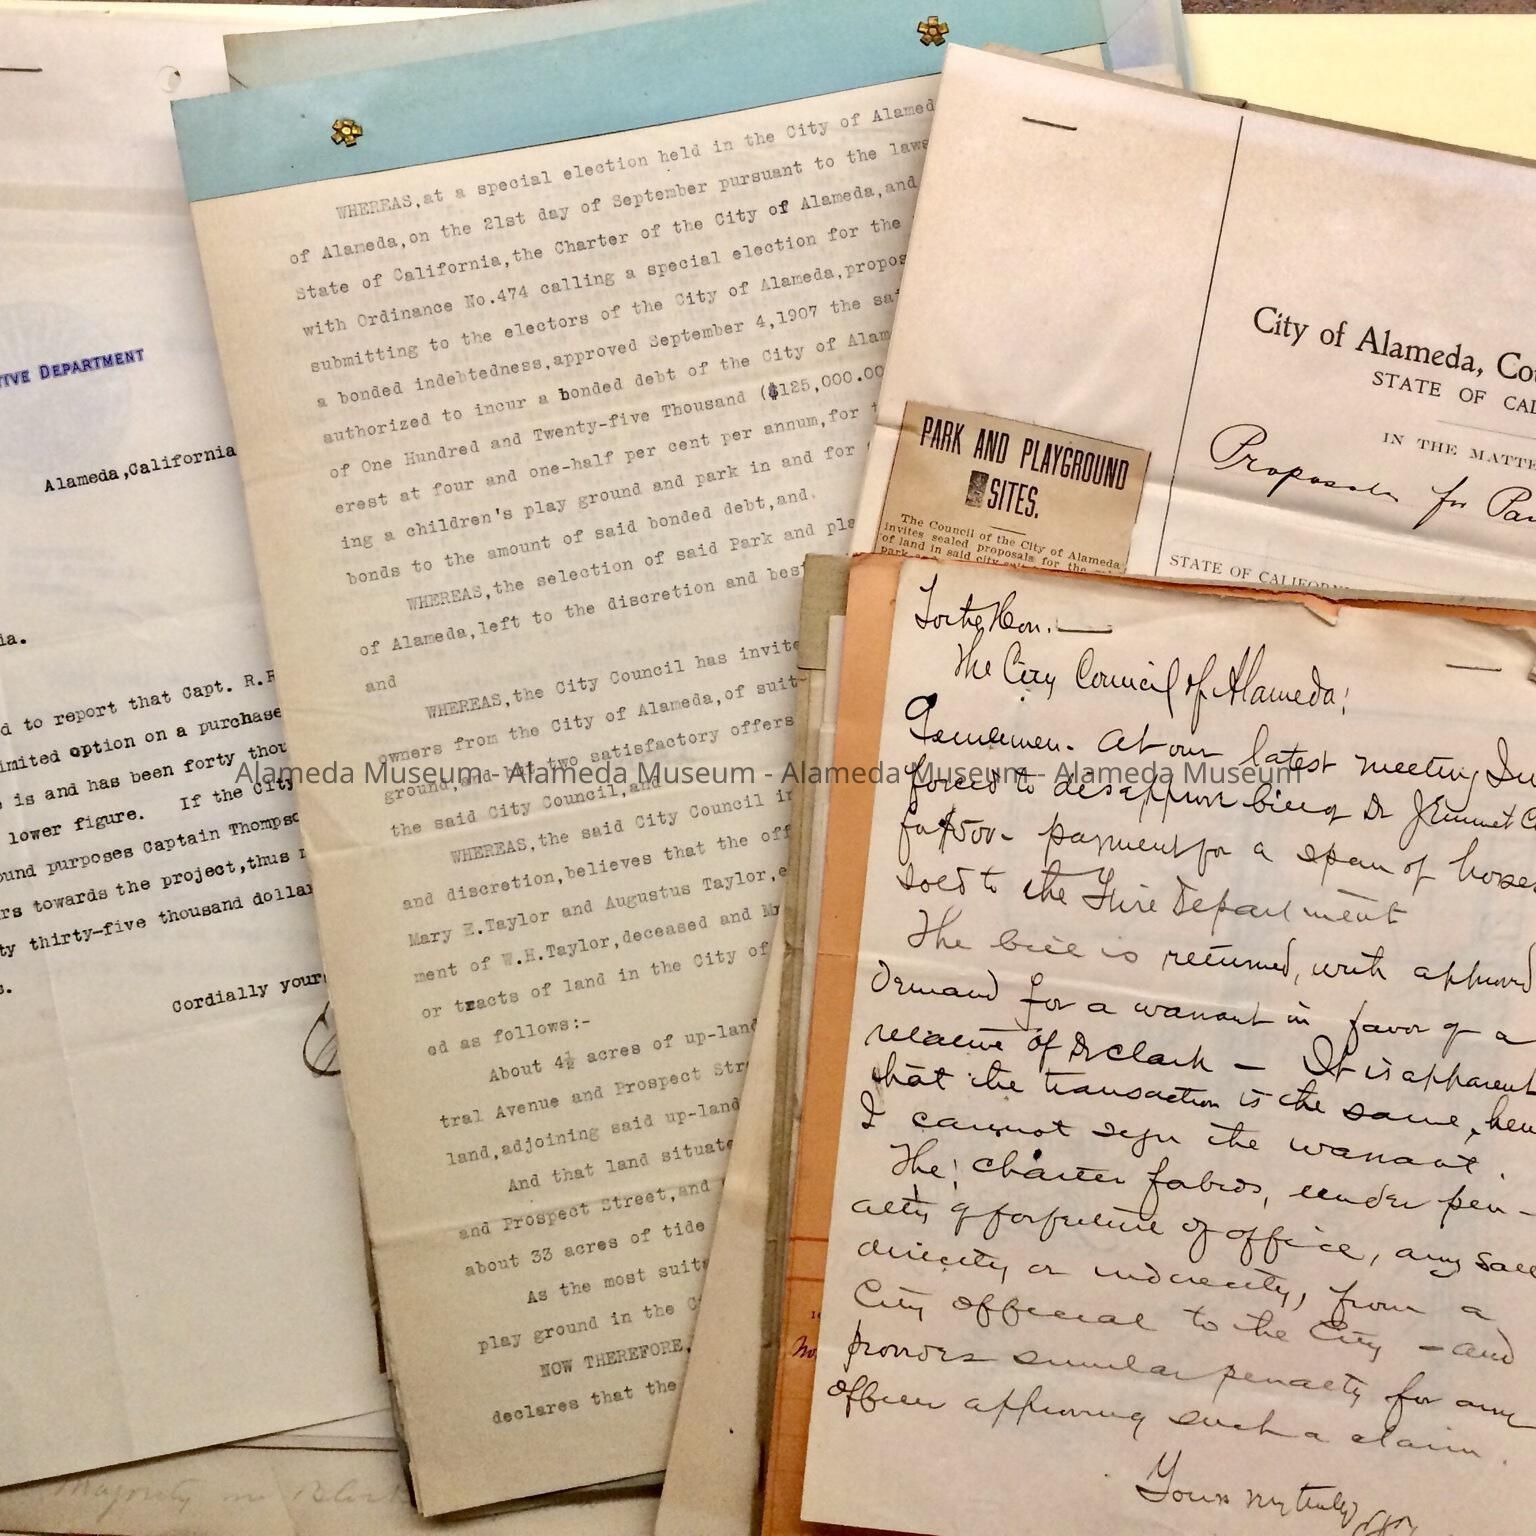 TIVE DEPARTMENT
Alameda,California
ia.
d to report that Capt. R.R
imited option on a purchase
is and has been forty thou
lower figure. If the City
ound purposes Captain Thompso
rs towards the project,thus
ty thirty-five thousand dollar
s.
Cordially yours
WHEREAS,at a special election held in the City of Alamed
of Alameda,on the 21st day of September pursuant to the laws
State of California,the Charter of the City of Alameda,and
with Ordinance No.474 calling a special election for the
submitting to the electors of the City of Alameda,propos
a bonded indebtedness,approved September 4,1907 the sai
authorized to incur a bonded debt of the City of Alam
of One Hundred and Twenty-five Thousand ($125,000.00
erest at four and one-half per cent per annum,for
ing a children's play ground and park in and for
bonds to the amount of said bonded debt,and.
WHEREAS,the selection of said Park and pla
of Alameda,left to the discretion and best
and
WHEREAS,the City Council has invite
owners from the City of Alameda,of suit-
ground,and but two satisfactory offers
the said City Council,and
WHEREAS,the said City Council in
and discretion,believes that the off
Mary E.Taylor and Augustus Taylor,e
ment of W.H.Taylor,deceased and Mr
or tracts of land in the City of
ed as follows:-
About 4½ acres of up-land
tral Avenue and Prospect Stre
land,adjoining said up-land
And that land situate
and Prospect Street,and
about 33 acres of tide
As the most suita
play ground in the C
NOW THEREFORE,
declares that the
City of Alameda, Cou
STATE OF CAL
IN THE MATTE
Proposals for Par
STATE OF CALIFORNI
PARK AND PLAYGROUND
SITES.
The Council of the City of Alameda
invites sealed proposals for the
of land in said city
park
To the Hon.
The City Council of Alameda;
Gentlemen. At our latest meeting I w
forced to disapprove bill of Dr J Emmet C
for $500- payment for a span of horses
sold to the Fire Department
The bill is returned, with approved
demand for a warrant in favor of a
relative of Dr Clark — It is apparent
that the transaction is the same, hen
I cannot sign the warrant.
The charter forbids, under pen-
alty of forfeiture of office, any sale
directly or indirectly, from a
City official to the City — and
provides similar penalty for any
officer approving such a claim.
Yours very truly
Majority on Block
Alameda Museum - Alameda Museum - Alameda Museum - Alameda Museum